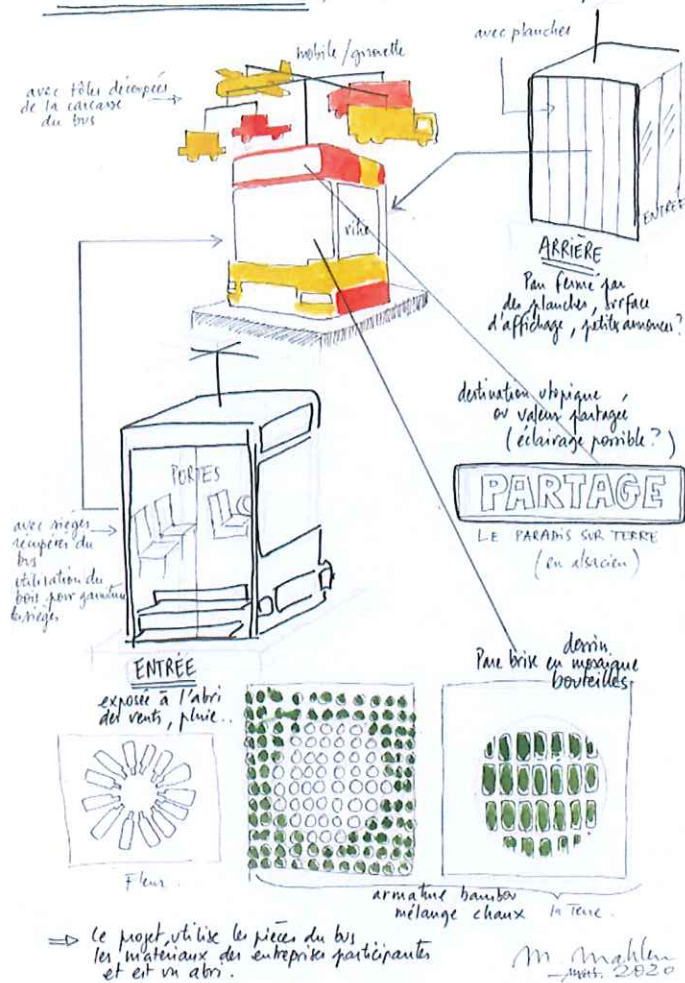 mobile/girouette
avec planches
avec tôles découpées
de la carcasse
du bus
vitre
ENTRÉE
ARRIÈRE
Pan fermé par
des planches, surface
d'affichage, petites annonces?
destination utopique
ou valeur partagée
(éclairage possible?)
PORTES
PARTAGE
LE PARADIS SUR TERRE
(en alsacien)
avec sièges
récupérés du
bus
utilisation du
bois pour garniture
sièges
ENTRÉE
exposée à l'abri
des vents, pluie..
dessin
Pare brise en mosaïque
bouteilles
Fleur.
armature bambou
mélange chaux la Terre.
⇒ Ce projet utilise les pièces du bus
les matériaux des entreprises participantes
et est un abri.
M. Mahlen
2020